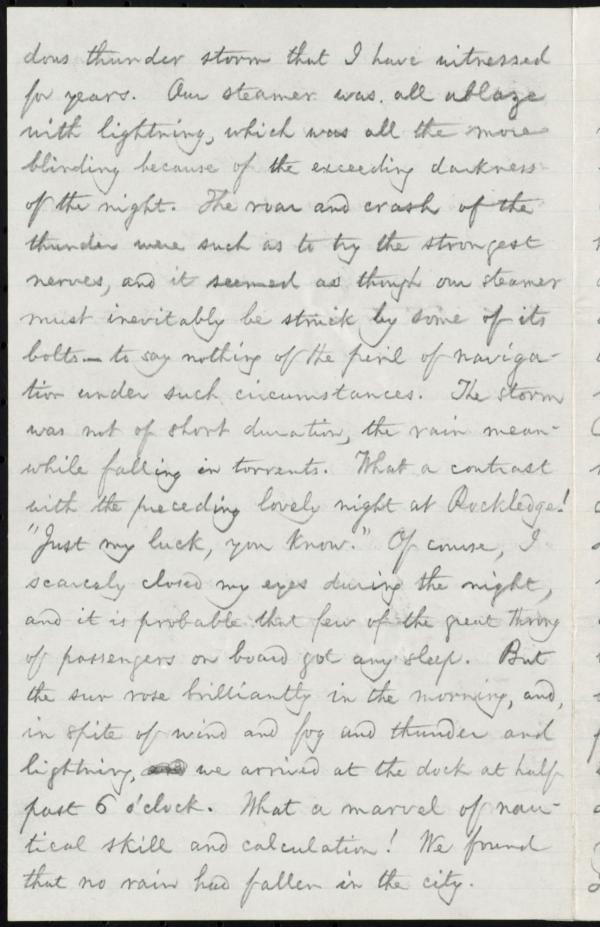 dous thunder storm that I have witnessed
for years. Our steamer was all ablaze
with lightning, which was all the more
blinding because of the exceeding darkness
of the night. The roar and crash of the
thunder were such as to try the strongest
nerves, and it seemed as though our steamer
must inevitably be struck by some of its
bolts — to say nothing of the peril of naviga-
tion under such circumstances. The storm
was not of short duration, the rain mean-
while falling in torrents. What a contrast
with the preceding lovely night at Rockledge!
"Just my luck, you know." Of course, I
scarcely closed my eyes during the night,
and it is probable that few of the great throng
of passengers on board got any sleep. But
the sun rose brilliantly in the morning, and,
in spite of wind and fog and thunder and
lightning, we arrived at the dock at half
past 6 o'clock. What a marvel of nau-
tical skill and calculation! We found
that no rain had fallen in the city.